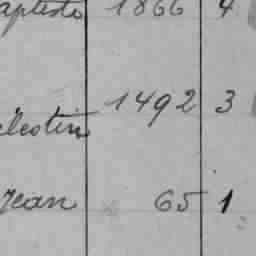 aptiste 1866 4
élestin 1492 3
Jean 65 1